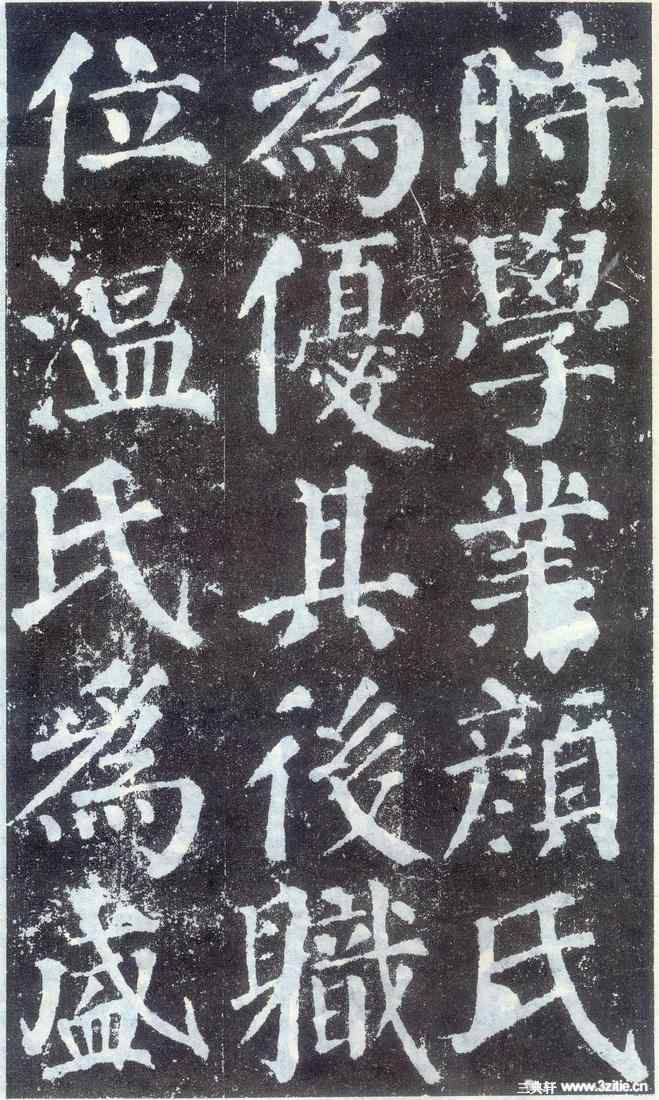 時學業顏氏
為優其後職
位温氏為盛
三典轩 www.3zitie.cn